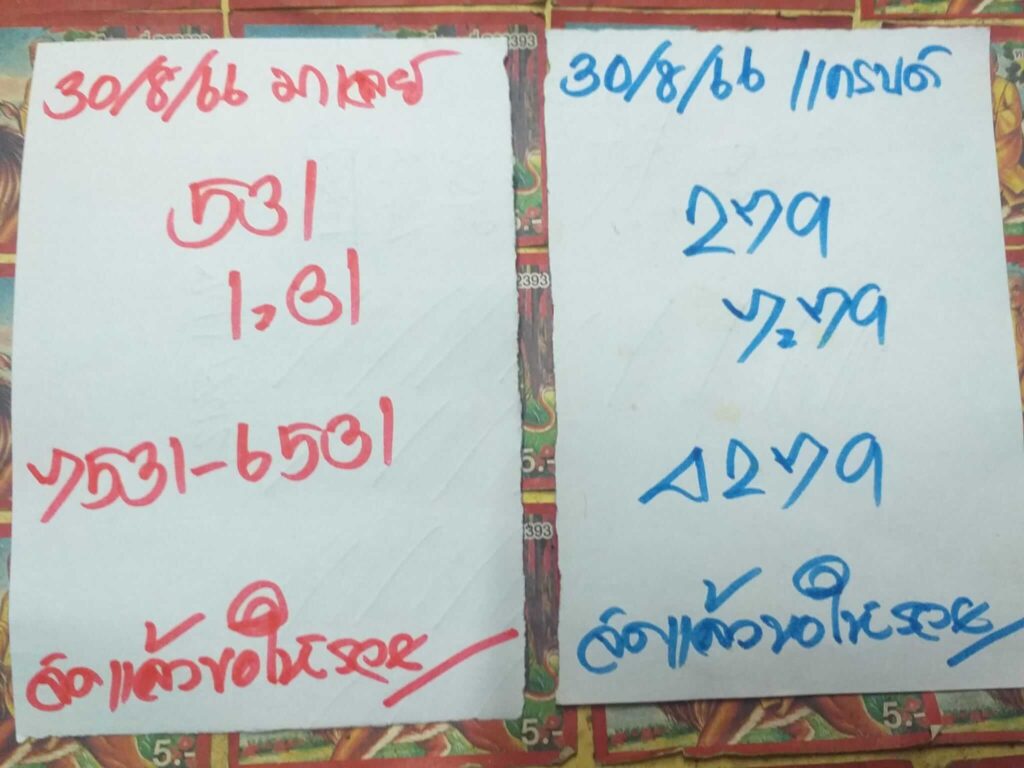 30/8/66 มาเลย์
531
1,31
7531-6531
จัดแล้วขอให้รวย
30/8/66 แกรนด์
279
7,79
4279
จัดแล้วขอให้รวย
393
2393
393
5.-
5.-
5.-
5.-